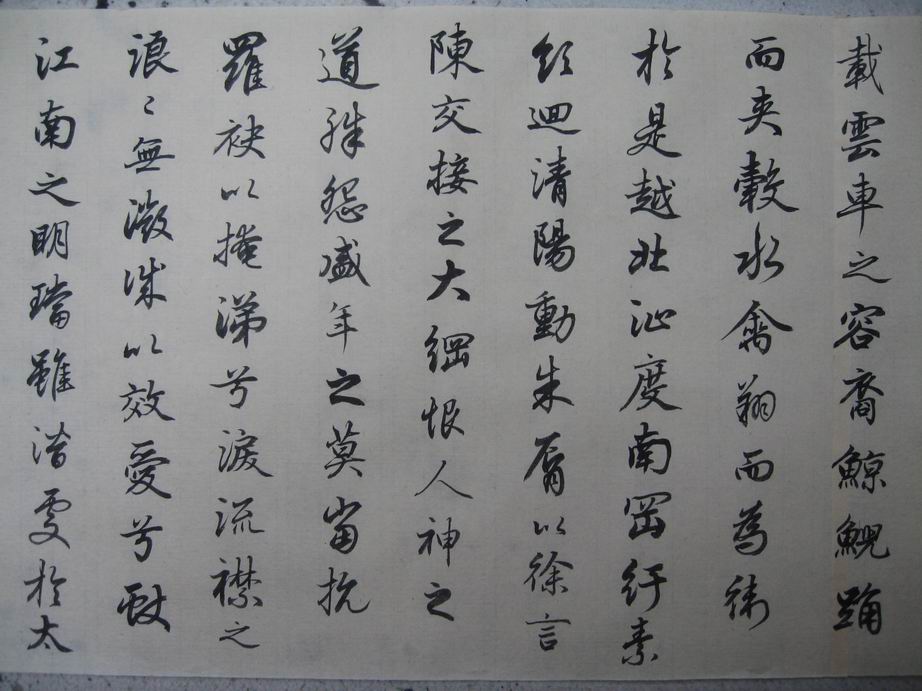 載雲車之容裔鯨鯢踊
而夾轂水禽翔而為衛
於是越北沚度南岡紆素
領迴清陽動朱脣以徐言
陳交接之大綱恨人神之
道殊怨盛年之莫當抗
羅袂以掩涕兮淚流襟之
浪〻無微誠以效愛兮獻
江南之明璫雖潛處於太